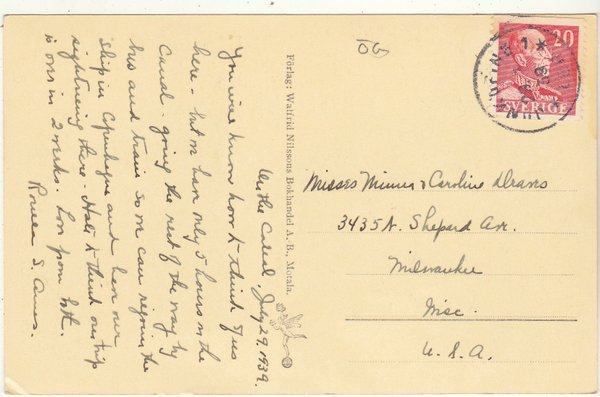 On the Canal July 29, 1939.
You will know how to think of us
here - but we have only 5 hours on the
Canal - going the rest of the way by
bus and train so we can rejoin the
ship in Copenhagen and have our
sightseeing there - Hate to think our trip
is over in 2 weeks. Love from both.
Rowena S. Ames.
Förlag: Walfrid Nilssons Bokhandel A. B., Motala.
OG
20
SVERIGE
Misses Minnie & Caroline
3435 N. Shepard Ave.
Milwaukee
Wisc.
U. S. A.